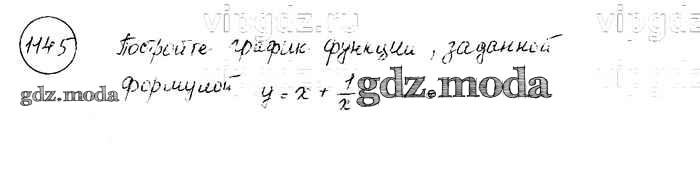 vipgdz.ru vipgdz
1145 Постройте график функции, заданной
vipgdz.ru vipgdz
gdz.moda формулой y = x + 1/x gdz.moda